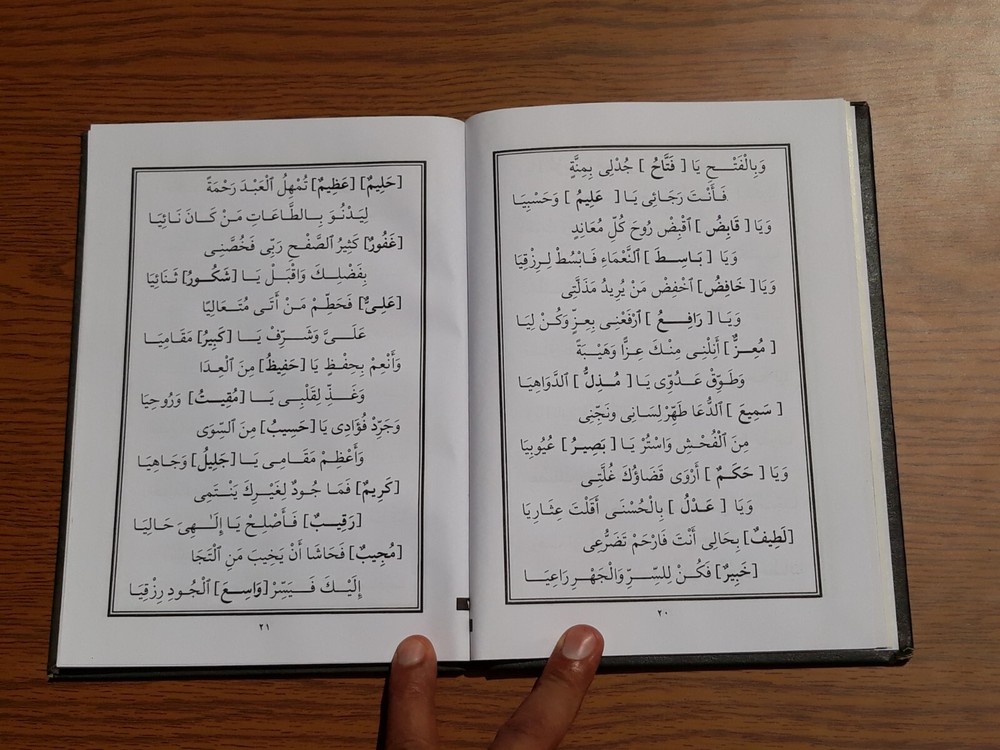 وَبِالْفَتْـــحِ يَا [ فَتَّاحُ ] جُدْلِى بِمِنَّةٍ
فَأَنْتَ رَجَائِى يَا [ عَلِيمُ ] وَحَسْبِيَا
وَيَا [ قَابِضُ ] ٱقْبِضْ رُوحَ كُلِّ مُعَانِدٍ
وَيَا [ بَـاسِـطَ ] ٱلنَّعْمَاءِ فَـابْسُطْ لِـرِزْقِيَا
وَيَا [ خَافِضُ ] ٱخْفِضْ مَنْ يُرِيدُ مَذَلَّتِى
وَيَـا [ رَافِــعُ ] ٱرْفَعْنِـى بِعِـزٍّ وَكُـنْ لِيَا
[ مُعِـزٌّ ] أَنِلْنِى مِنْـكَ عِـزًّا وَهَيْبَـةً
وَطَـوِّقْ عَـدُوِّى يَـا [ مُـذِلُّ ] ٱلدَّوَاهِيَـا
[ سَمِيعَ ] ٱلدُّعَا طَهِّرْ لِسَـانِى وَنَجِّنِى
مِنَ ٱلْفُحْـشِ وَاسْتُرْ يَـا [ بَصِيـرُ ] عُيُوبِيَا
وَيَا [ حَكَـمٌ ] أَرْوَى قَضَـاؤُكَ غُلَّتِـى
وَيَـا [ عَـدْلُ ] بِالْحُسْنَـى أَقَلْتَ عِثَـارِيَا
[لَطِيفٌ] بِحَالِى أَنْتَ فَارْحَمْ تَضَرُّعِى
[خَبِيرٌ] فَكُـنْ لِلسِـرِّ وَالْجَهْـرِ رَاعِيَـا
٢٠
[حَلِيمٌ] [عَظِيمٌ] تُمْهِلُ ٱلْعَبْـدَ رَحْمَةً
لِيَدْنُوَ بِـالطَّاعَاتِ مَـنْ كَـانَ نَـائِيَا
[غَفُورٌ] كَثِيرُ ٱلصَّفْـحِ رَبِّى فَخُصَّنِـى
بِفَضْلِـكَ وَاقْبَـلْ يَـا [شَكُـورُ] ثَـنَائِيَا
[عَلِـىٌّ] فَحَطِّـمْ مَـنْ أَتَـى مُتَـعَالِيًا
عَلَـىَّ وَشَـرِّفْ يَـا [كَبِيرُ] مَقَـامِيَـا
وَأَنْعِمْ بِحِفْظٍ يَا [حَفِيظُ] مِنَ ٱلْعِـدَا
وَغَـذِّ لِقَلْبِـى يَـا [مُقِيـتُ] وَرُوحِيَا
وَجَرِّدْ فُؤَادِى يَا [حَسِيبُ] مِنَ ٱلسِّوَى
وَأَعْظِـمْ مَقَـامِـى يَـا [جَلِيلُ] وَجَـاهِيَـا
[كَرِيمٌ] فَمَـا جُـودٌ لِغَيْـرِكَ يَنْـتَمِى
[رَقِيـبٌ] فَـأَصْلِـحْ يَـا إِلَـٰهِـىَ حَـالِيَـا
[مُجِيبٌ] فَحَاشَا أَنْ يَخِيبَ مَنِ ٱلْتَجَا
إِلَيْـكَ فَـيَسِّرْ [وَاسِـعَ] ٱلْجُـودِ رِزْقِيَـا
٢١